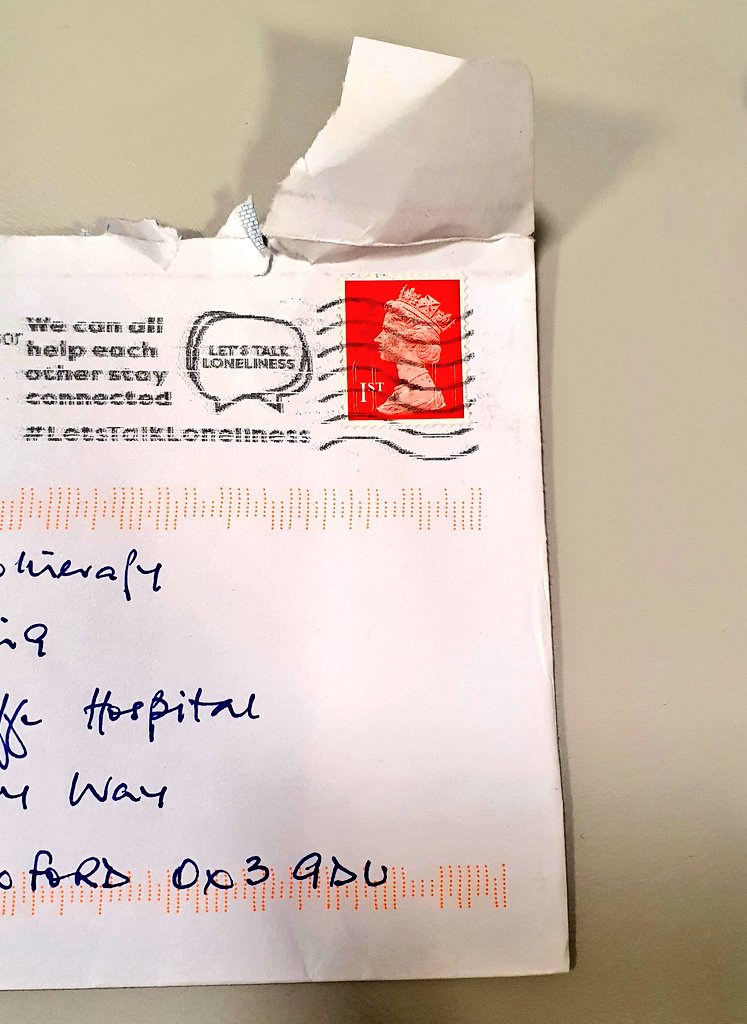 We can all
help each
other stay
connected
#LetsTalkLoneliness
LET'S TALK
LONELINESS
1ST
Hospital
Way
OX3 9DU